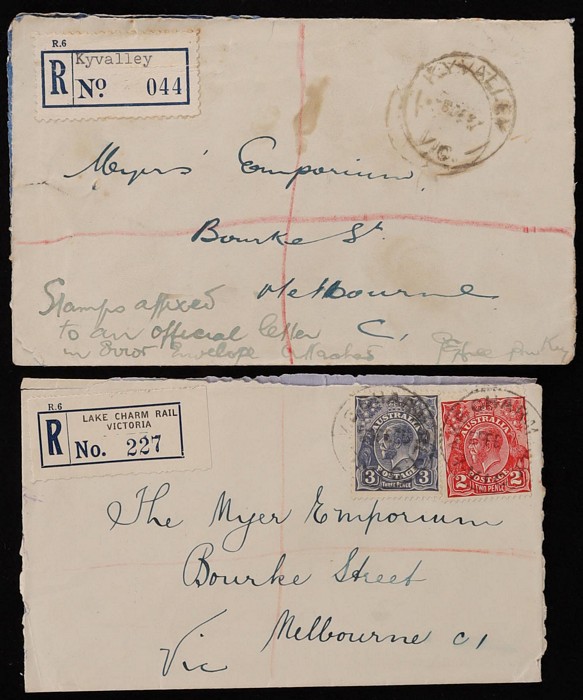 R.6
R
Kyvalley
No 044
KYVALLEY
VIC.
Myers' Emporium,
Bourke St.
Melbourne
C,
Stamps affixed
to an official letter
in Error Envelope Attached
R.6
R
LAKE CHARM RAIL
VICTORIA
No. 227
AUSTRALIA
3 POSTAGE 3
THREE PENCE
AUSTRALIA
2 POSTAGE 2
TWO PENCE
The Myer Emporium
Bourke Street
Melbourne C1
Vic